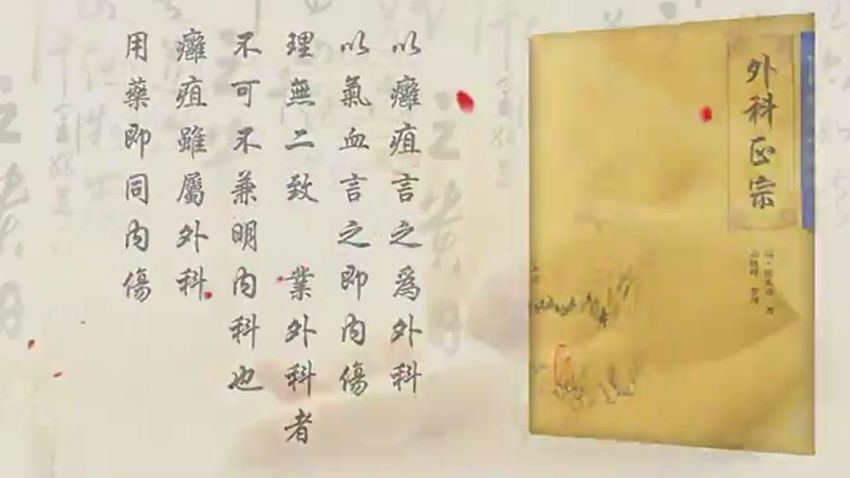 以癰疽言之爲外科
以氣血言之即內傷
理無二致 業外科者
不可不兼明內科也
癰疽雖屬外科
用藥即同內傷
外科正宗